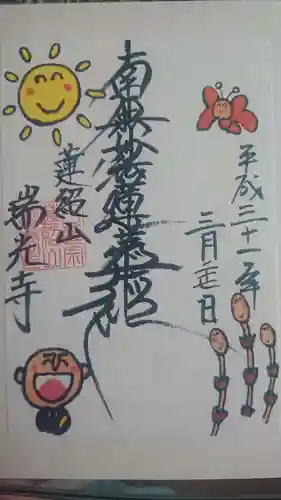 平成三十一年
三月走日
南無妙法蓮華経
蓮紹山
瑞光寺